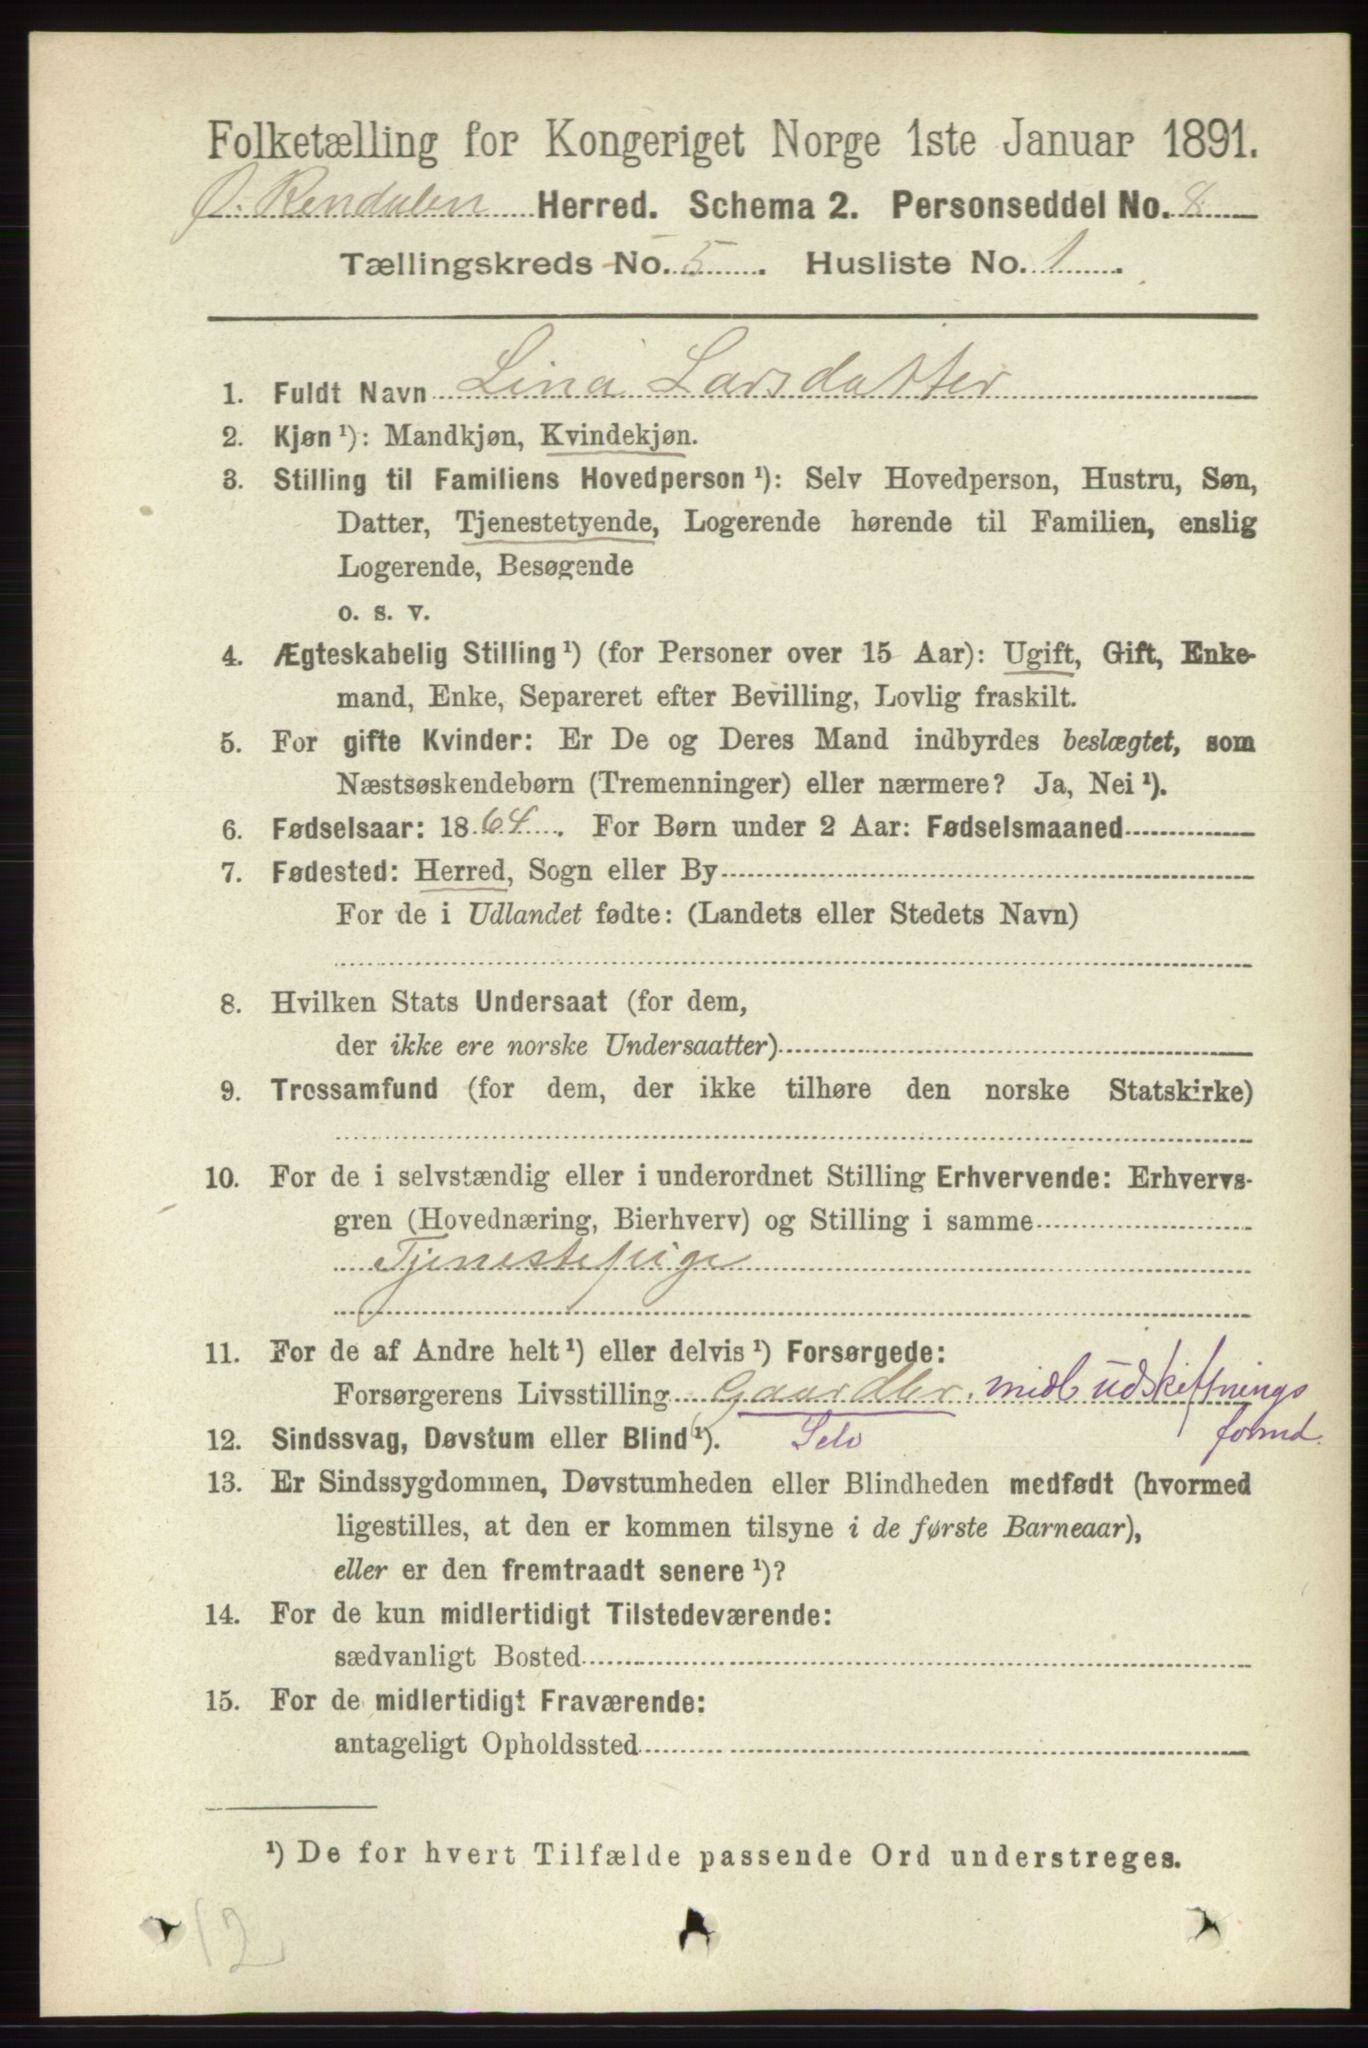 Folketælling for Kongeriget Norge 1ste Januar 1891.
Ø. Rendalen Herred. Schema 2. Personseddel No. 8
Tællingskreds No. 5. Husliste No. 1.
1. Fuldt Navn Lina Larsdatter
2. Kjøn ¹): Mandkjøn, Kvindekjøn.
3. Stilling til Familiens Hovedperson ¹): Selv Hovedperson, Hustru, Søn,
Datter, Tjenestetyende, Logerende hørende til Familien, enslig
Logerende, Besøgende
o. s. v.
4. Ægteskabelig Stilling ¹) (for Personer over 15 Aar): Ugift, Gift, Enke-
mand, Enke, Separeret efter Bevilling, Lovlig fraskilt.
5. For gifte Kvinder: Er De og Deres Mand indbyrdes beslægtet, som
Næstsøskendebørn (Tremenninger) eller nærmere? Ja, Nei ¹).
6. Fødselsaar: 1864. For Børn under 2 Aar: Fødselsmaaned
7. Fødested: Herred, Sogn eller By
For de i Udlandet fødte: (Landets eller Stedets Navn)
8. Hvilken Stats Undersaat (for dem,
der ikke ere norske Undersaatter)
9. Trossamfund (for dem, der ikke tilhøre den norske Statskirke)
10. For de i selvstændig eller i underordnet Stilling Erhvervende: Erhvervs-
gren (Hovednæring, Bierhverv) og Stilling i samme
Tjenestepige
11. For de af Andre helt ¹) eller delvis ¹) Forsørgede:
Forsørgerens Livsstilling Gaardbr. midl udskiftnings
formd.
12. Sindssvag, Døvstum eller Blind ¹). Selv
13. Er Sindssygdommen, Døvstumheden eller Blindheden medfødt (hvormed
ligestilles, at den er kommen tilsyne i de første Barneaar),
eller er den fremtraadt senere ¹)?
14. For de kun midlertidigt Tilstedeværende:
sædvanligt Bosted
15. For de midlertidigt Fraværende:
antageligt Opholdssted
¹) De for hvert Tilfælde passende Ord understreges.
12